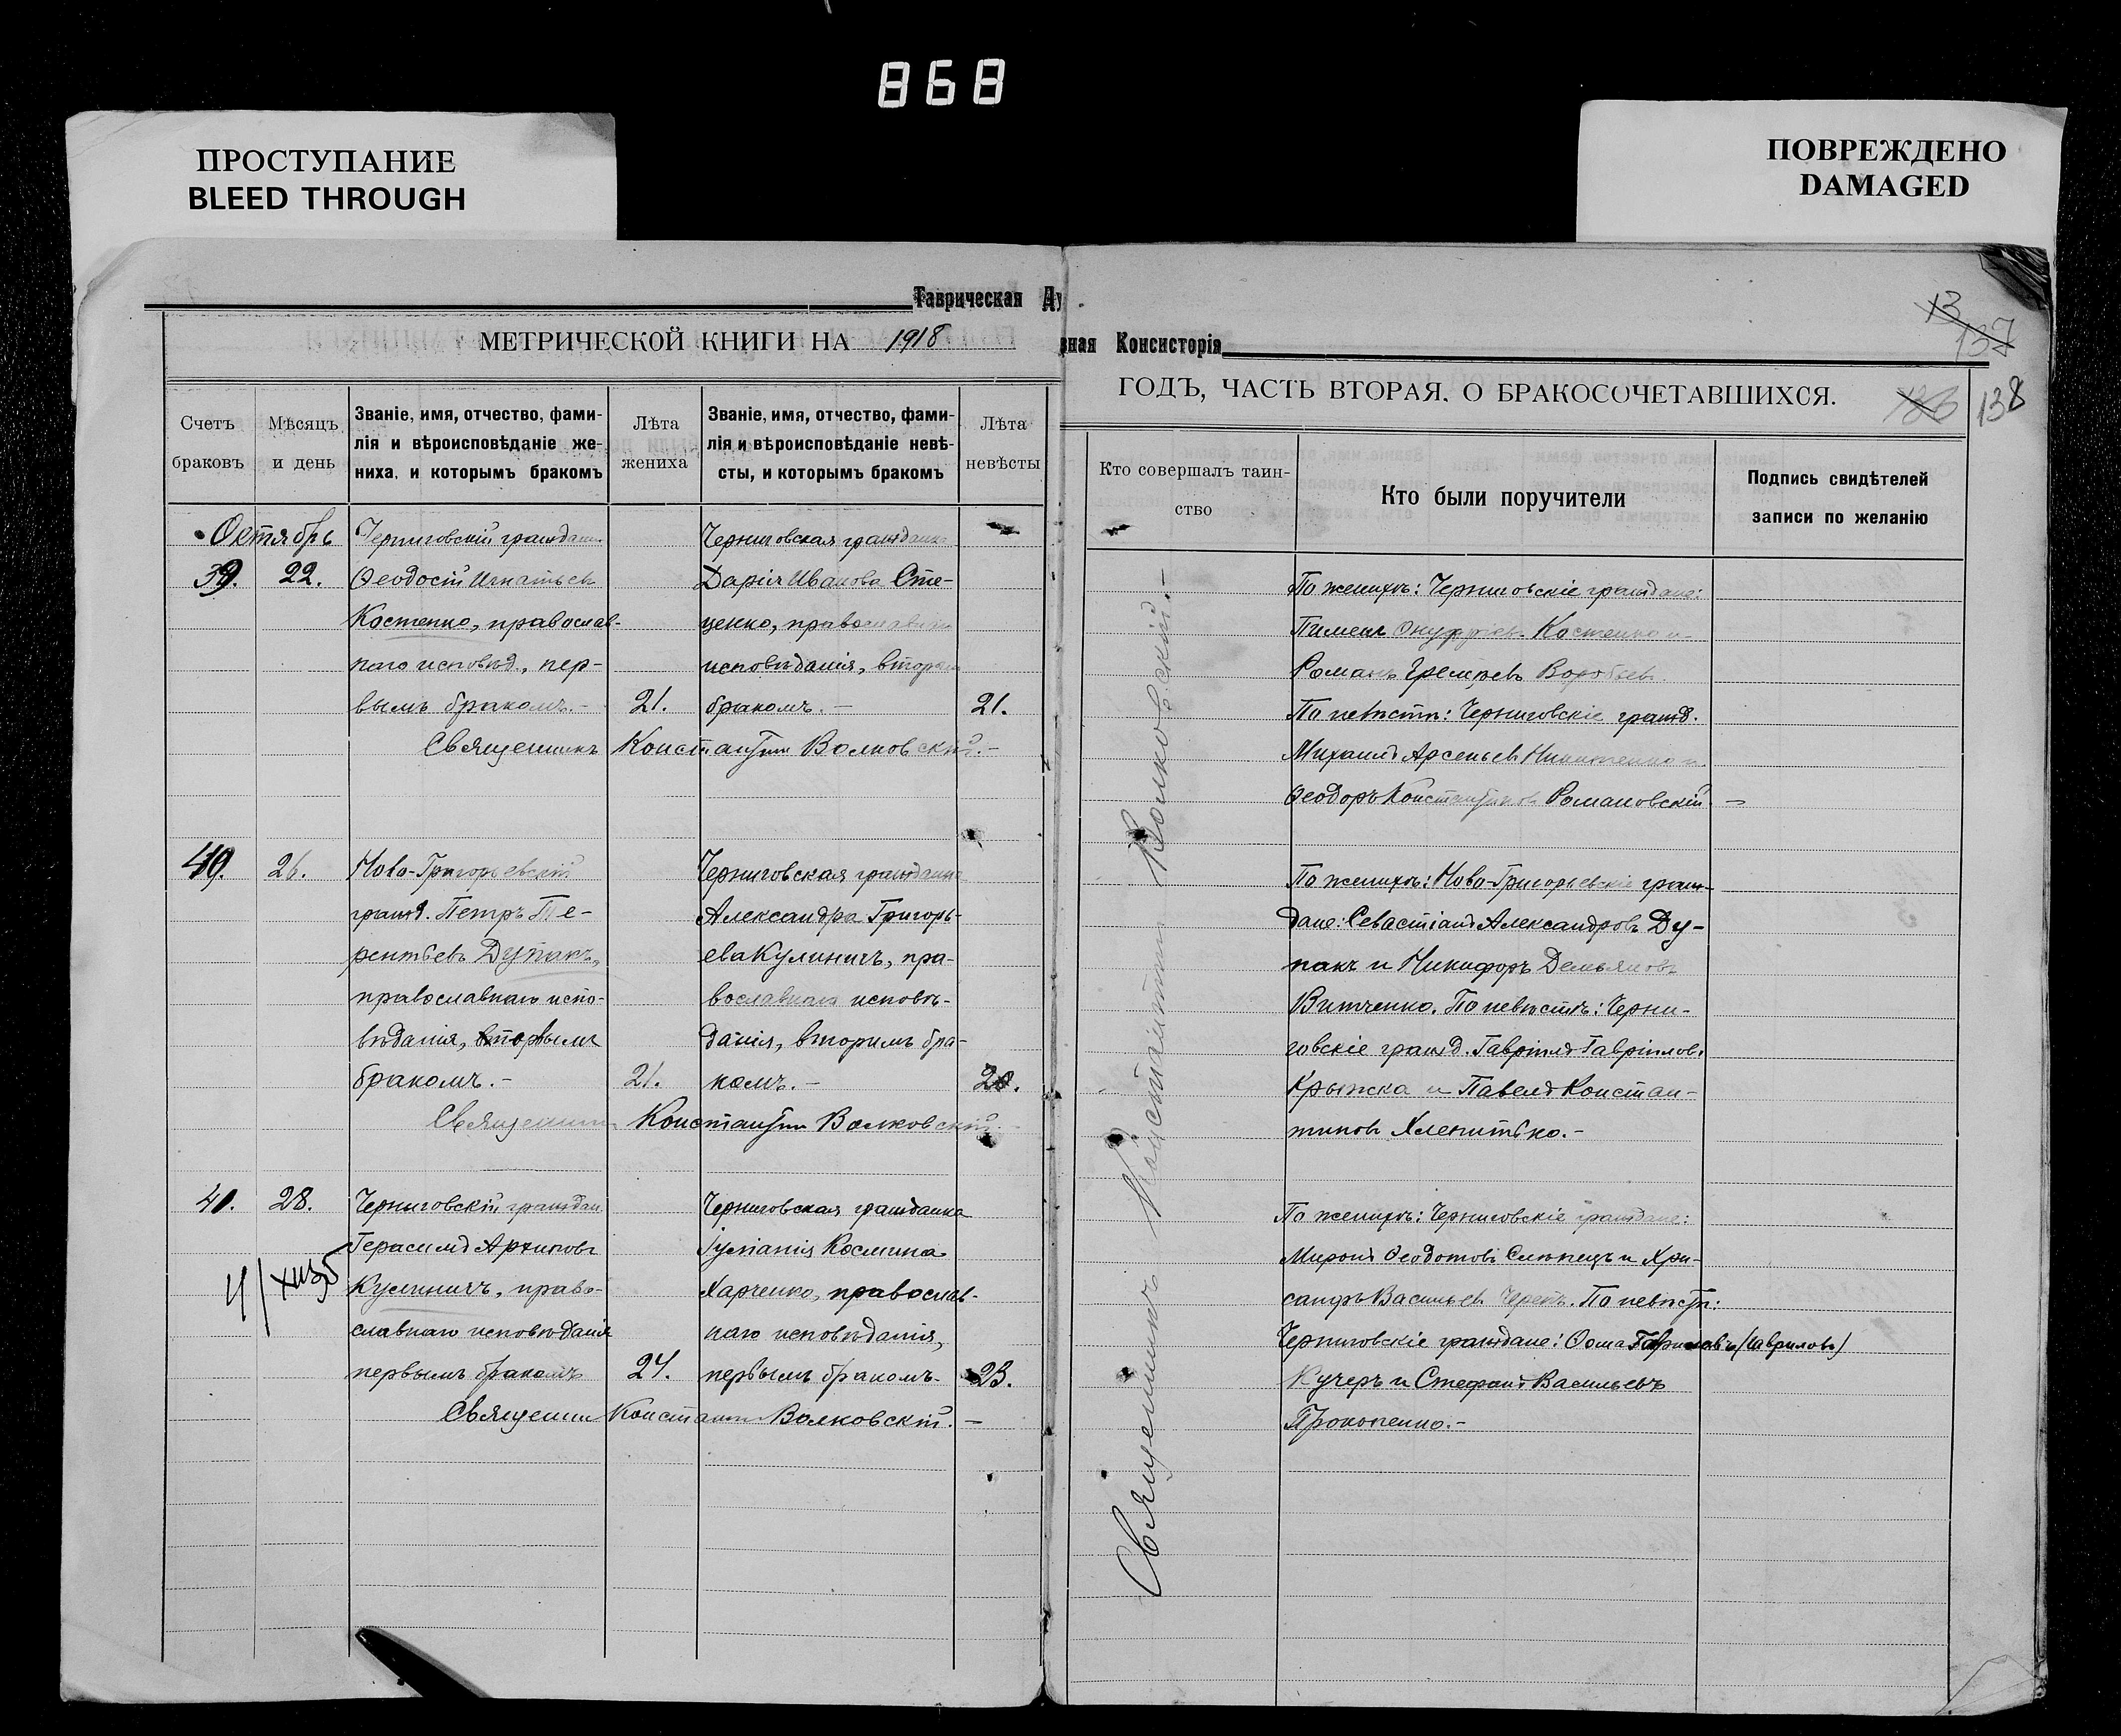 868
ПРОСТУПАНИЕ
BLEED THROUGH
ПОВРЕЖДЕНО
DAMAGED
Таврическая Ду
вная Консисторія
МЕТРИЧЕСКОЙ КНИГИ НА 1918
ГОДЪ, ЧАСТЬ ВТОРАЯ. О БРАКОСОЧЕТАВШИХСЯ.
13
137
136
138
Счетъ браковъ
Мѣсяцъ и день
Званіе, имя, отчество, фами-
лія и вѣроисповѣданіе же-
ниха, и которымъ бракомъ
Лѣта жениха
Званіе, имя, отчество, фами-
лія и вѣроисповѣданіе невѣ-
сты, и которымъ бракомъ
Лѣта невѣсты
Кто совершалъ таин-
ство
Кто были поручители
Подпись свидѣтелей
записи по желанію
Октябрь
39.
22.
Черниговскій граждан.
Ѳеодосій Игнатьев
Костенко, православ-
наго исповѣд., пер-
вымъ бракомъ.-
21.
Черниговская гражданка
Дарія Иванова Сте-
ценко, православнаго
исповѣданія, вторым
бракомъ.-
21.
Священникъ Константин Волковскій.-
По женихѣ: Черниговскіе граждане:
Пименъ Онуфріев Костенко и
Романъ Воробьев.
По невѣстѣ: Черниговскіе гражд.
Михаилъ Арсеньев Никитенко и
Ѳеодоръ Константинов Романовскій -
40.
26.
Ново-Григорьевскій
гражд. Петръ Те-
рентьевъ Дупакъ,
православнаго испо-
вѣданія, вымъ
бракомъ.-
21.
Черниговская гражданка
Александра Григорь-
ева Кулиничъ, пра-
вославнаго исповѣ-
данія, вторымъ бра-
комъ.-
20.
Священник Константин Волковскій.
По женихѣ: Ново-Григорьевскіе граж-
дане: Севастіанъ Александровъ Ду-
пакъ и Никифоръ Демьяновъ
Витченко. По невѣстѣ: Черни-
говскіе гражд. Гавріилъ Гавріилов.
Крыжка и Павелъ Констан-
тиновъ
41.
28.
Черниговскій граждан.
Герасимъ Архиповъ
Кулиничъ, право-
славнаго исповѣданія
первымъ бракомъ
24.
Черниговская гражданка
Іуліанія Космина
Харченко, православ-
наго исповѣданія,
первымъ бракомъ.
23.
Священник Констант. Волковскій.-
По женихѣ: Черниговскіе граждане:
Миронъ Ѳеодотовъ Слѣпецъ и Хри-
санфъ Васильев Черепъ. По невѣстѣ:
Черниговскіе граждане: Ѳома (Гаврилов)
Кучеръ и Стефанъ Васильевъ
Прокопенко.-
Священникъ Константин Волковскій.-